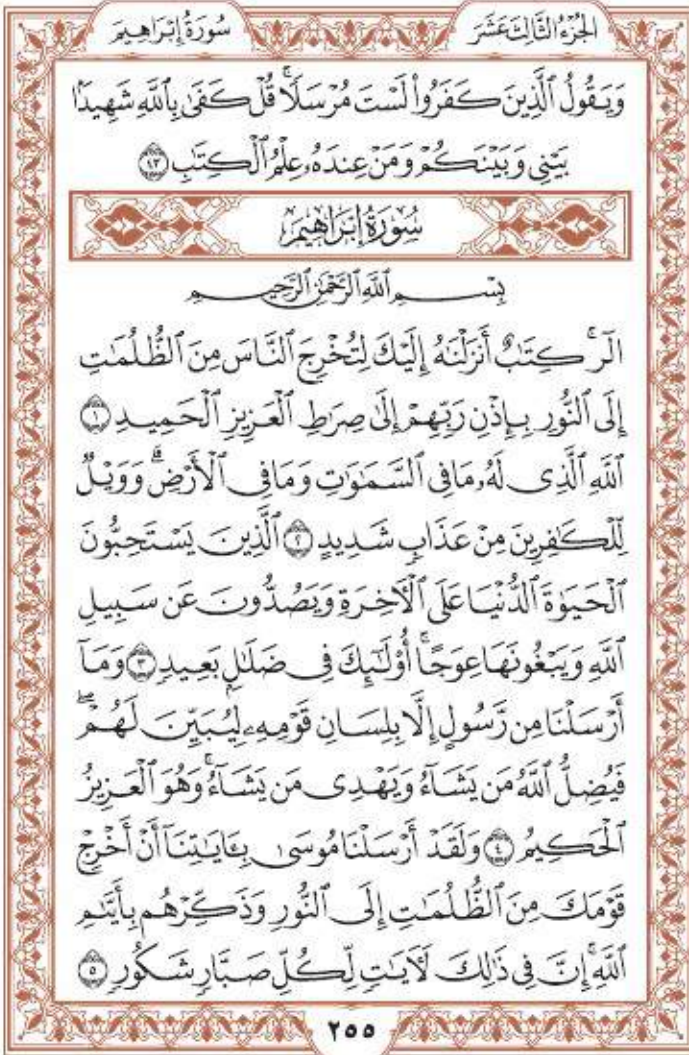 الجزء الثالث عشر
سورة إبراهيم
وَيَقُولُ ٱلَّذِينَ كَفَرُوا۟ لَسْتَ مُرْسَلًا ۚ قُلْ كَفَىٰ بِٱللَّهِ شَهِيدًۢا
بَيْنِى وَبَيْنَكُمْ وَمَنْ عِندَهُۥ عِلْمُ ٱلْكِتَٰبِ ٤٣
سُورَةُ إِبْرَاهِيمَ
بِسْمِ ٱللَّهِ ٱلرَّحْمَٰنِ ٱلرَّحِيمِ
الٓر ۚ كِتَٰبٌ أَنزَلْنَٰهُ إِلَيْكَ لِتُخْرِجَ ٱلنَّاسَ مِنَ ٱلظُّلُمَٰتِ
إِلَى ٱلنُّورِ بِإِذْنِ رَبِّهِمْ إِلَىٰ صِرَٰطِ ٱلْعَزِيزِ ٱلْحَمِيدِ ١
ٱللَّهِ ٱلَّذِى لَهُۥ مَا فِى ٱلسَّمَٰوَٰتِ وَمَا فِى ٱلْأَرْضِ ۗ وَوَيْلٌ
لِّلْكَٰفِرِينَ مِنْ عَذَابٍ شَدِيدٍ ٢ ٱلَّذِينَ يَسْتَحِبُّونَ
ٱلْحَيَوٰةَ ٱلدُّنْيَا عَلَى ٱلْءَاخِرَةِ وَيَصُدُّونَ عَن سَبِيلِ
ٱللَّهِ وَيَبْغُونَهَا عِوَجًا ۚ أُو۟لَٰٓئِكَ فِى ضَلَٰلٍۭ بَعِيدٍ ٣ وَمَآ
أَرْسَلْنَا مِن رَّسُولٍ إِلَّا بِلِسَانِ قَوْمِهِۦ لِيُبَيِّنَ لَهُمْ ۖ
فَيُضِلُّ ٱللَّهُ مَن يَشَآءُ وَيَهْدِى مَن يَشَآءُ ۚ وَهُوَ ٱلْعَزِيزُ
ٱلْحَكِيمُ ٤ وَلَقَدْ أَرْسَلْنَا مُوسَىٰ بِـَٔايَٰتِنَآ أَنْ أَخْرِجْ
قَوْمَكَ مِنَ ٱلظُّلُمَٰتِ إِلَى ٱلنُّورِ وَذَكِّرْهُم بِأَيَّىٰمِ
ٱللَّهِ ۚ إِنَّ فِى ذَٰلِكَ لَءَايَٰتٍ لِّكُلِّ صَبَّارٍ شَكُورٍ ٥
٢٥٥